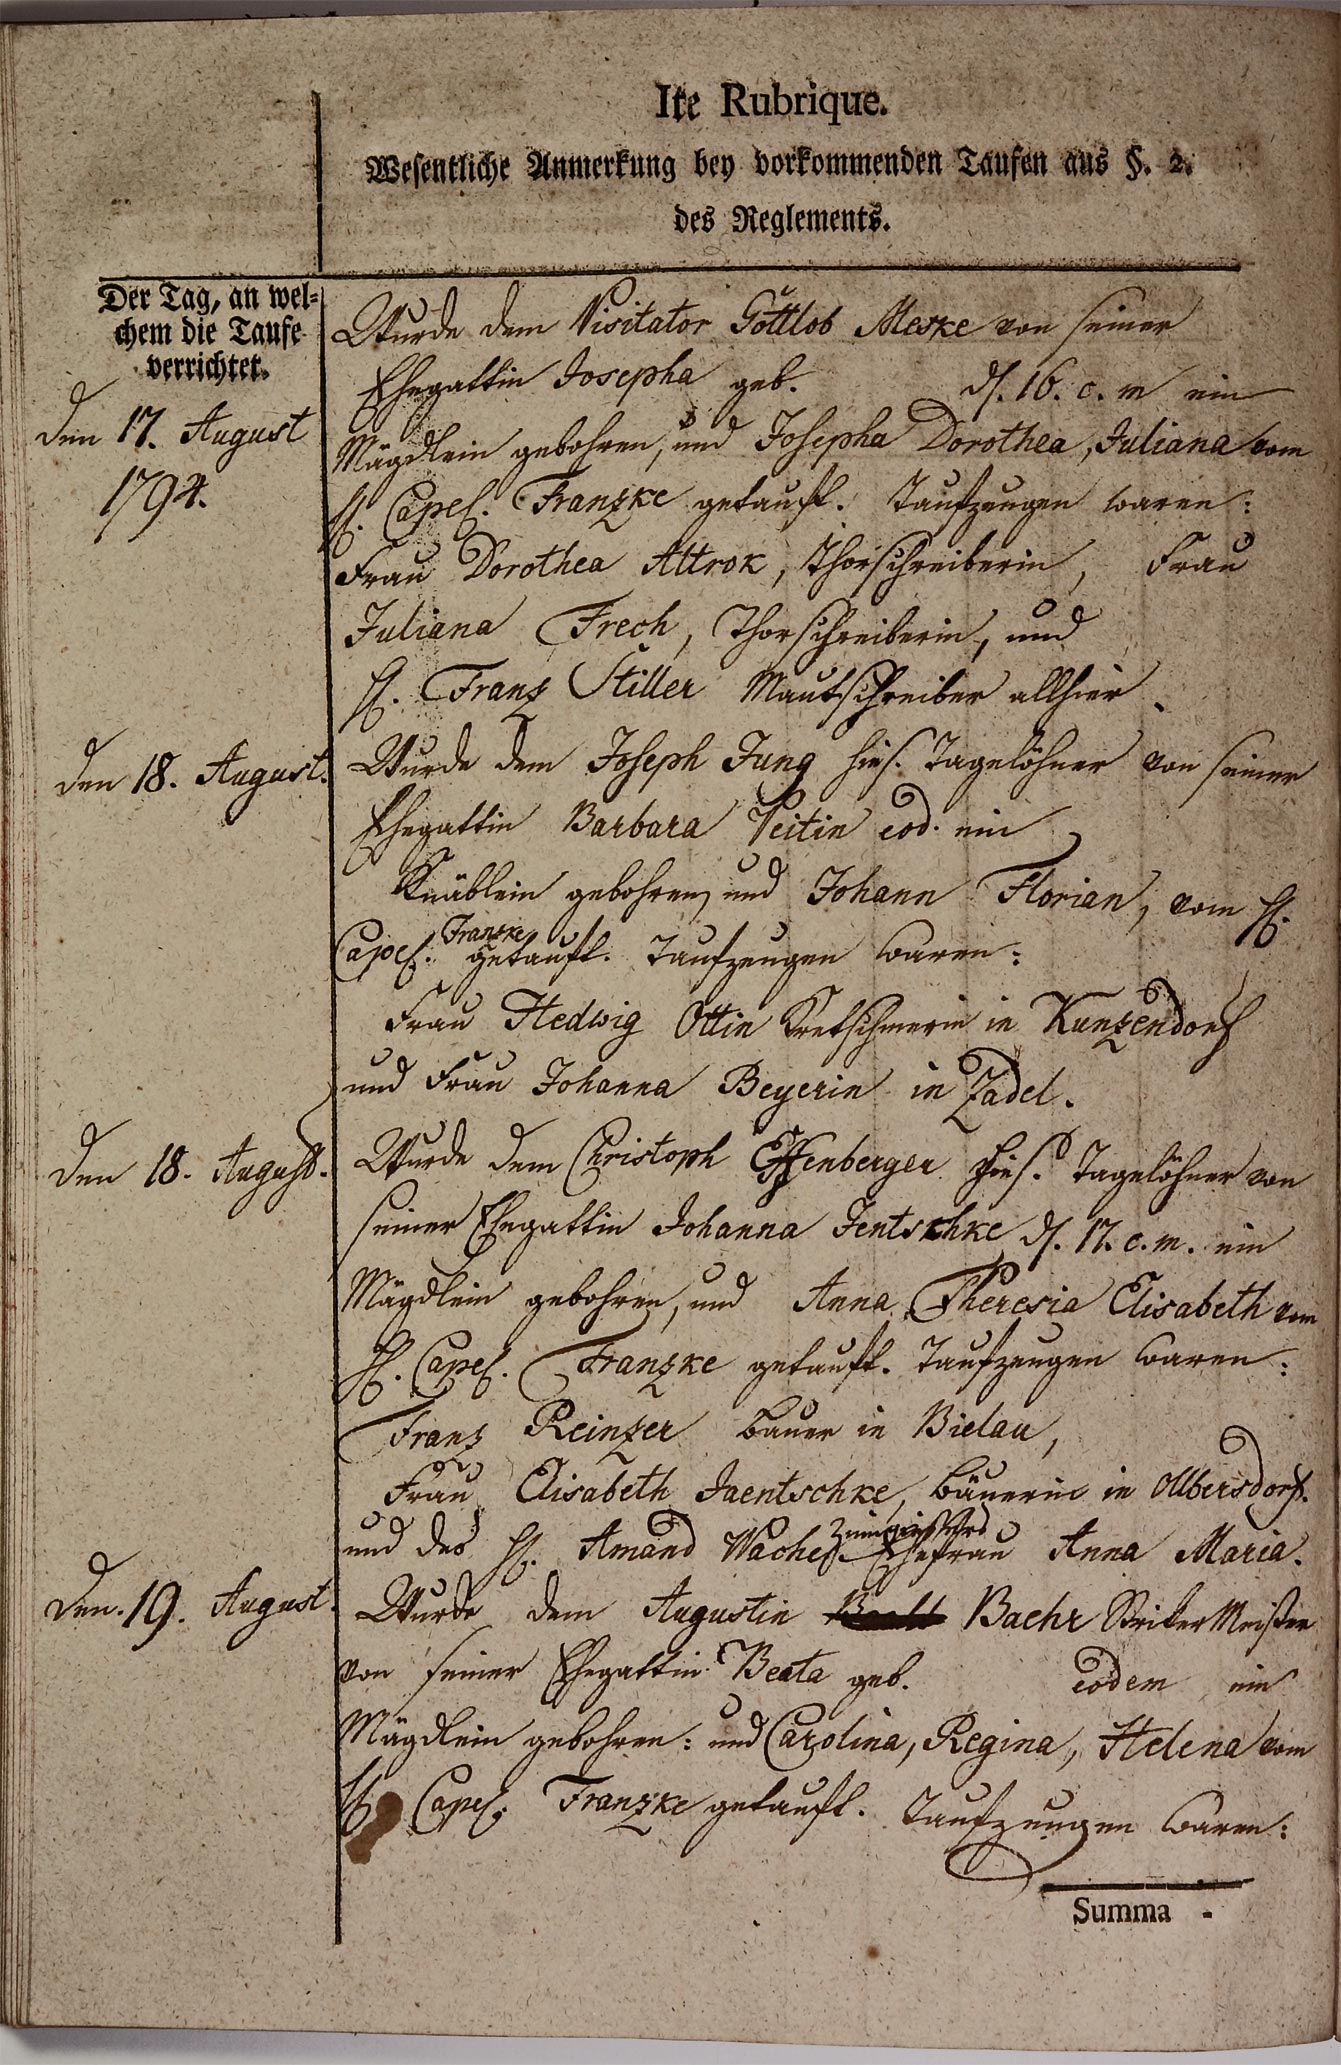 Ite Rubrique.
Wesentliche Anmerkung bey vorkommenden Taufen aus §. 2.
des Reglements.
Der Tag, an wel-
chem die Taufe
verrichtet.
den 17. August
1794.
Wurde dem Visitator Gottlob Meske von seiner
Ehegattin Josepha geb. d. 16. c. m ein
Mägdlein gebohren, und Josepha Dorothea, Juliana vom
H. Capel. Franzke getauft. Taufzeugen waren:
Frau Dorothea Attrok, Thorschreiberin, Frau
Juliana Frech, Thorschreiberin, und
H. Franz Stiller Mautschreiber allhier.
den 18. August.
Wurde dem Joseph Jung hies. Tagelöhner von seiner
Ehegattin Barbara Veitin eod. ein
Knäblein gebohren, und Johann Florian, vom H.
Capel. Franzke getauft. Taufzeugen waren:
Frau Hedwig Ottin Kretschmerin in Kunzendorf
und Frau Johanna Beyerin in Zadel.
den 18. August.
Wurde dem Christoph Effenberger hies. Tagelöhner von
seiner Ehegattin Johanna Jentschke d. 17. c. m. ein
Mägdlein gebohren, und Anna Theresia Elisabeth vom
H. Capel. Franzke getauft. Taufzeugen waren:
Franz Reinzer Bauer in Bielau,
Frau Elisabeth Jaentschke, Bäuerin in Olbersdorf.
und des H. Amand Wache Ehefrau Anna Maria.
Den. 19. August.
Wurde dem Augustin Baehr Meister
von seiner Ehegattin Beata geb. eodem ein
Mägdlein gebohren: und Carolina, Regina, Helena vom
H. Capel. Franzke getauft. Taufzeugen waren:
Summa -